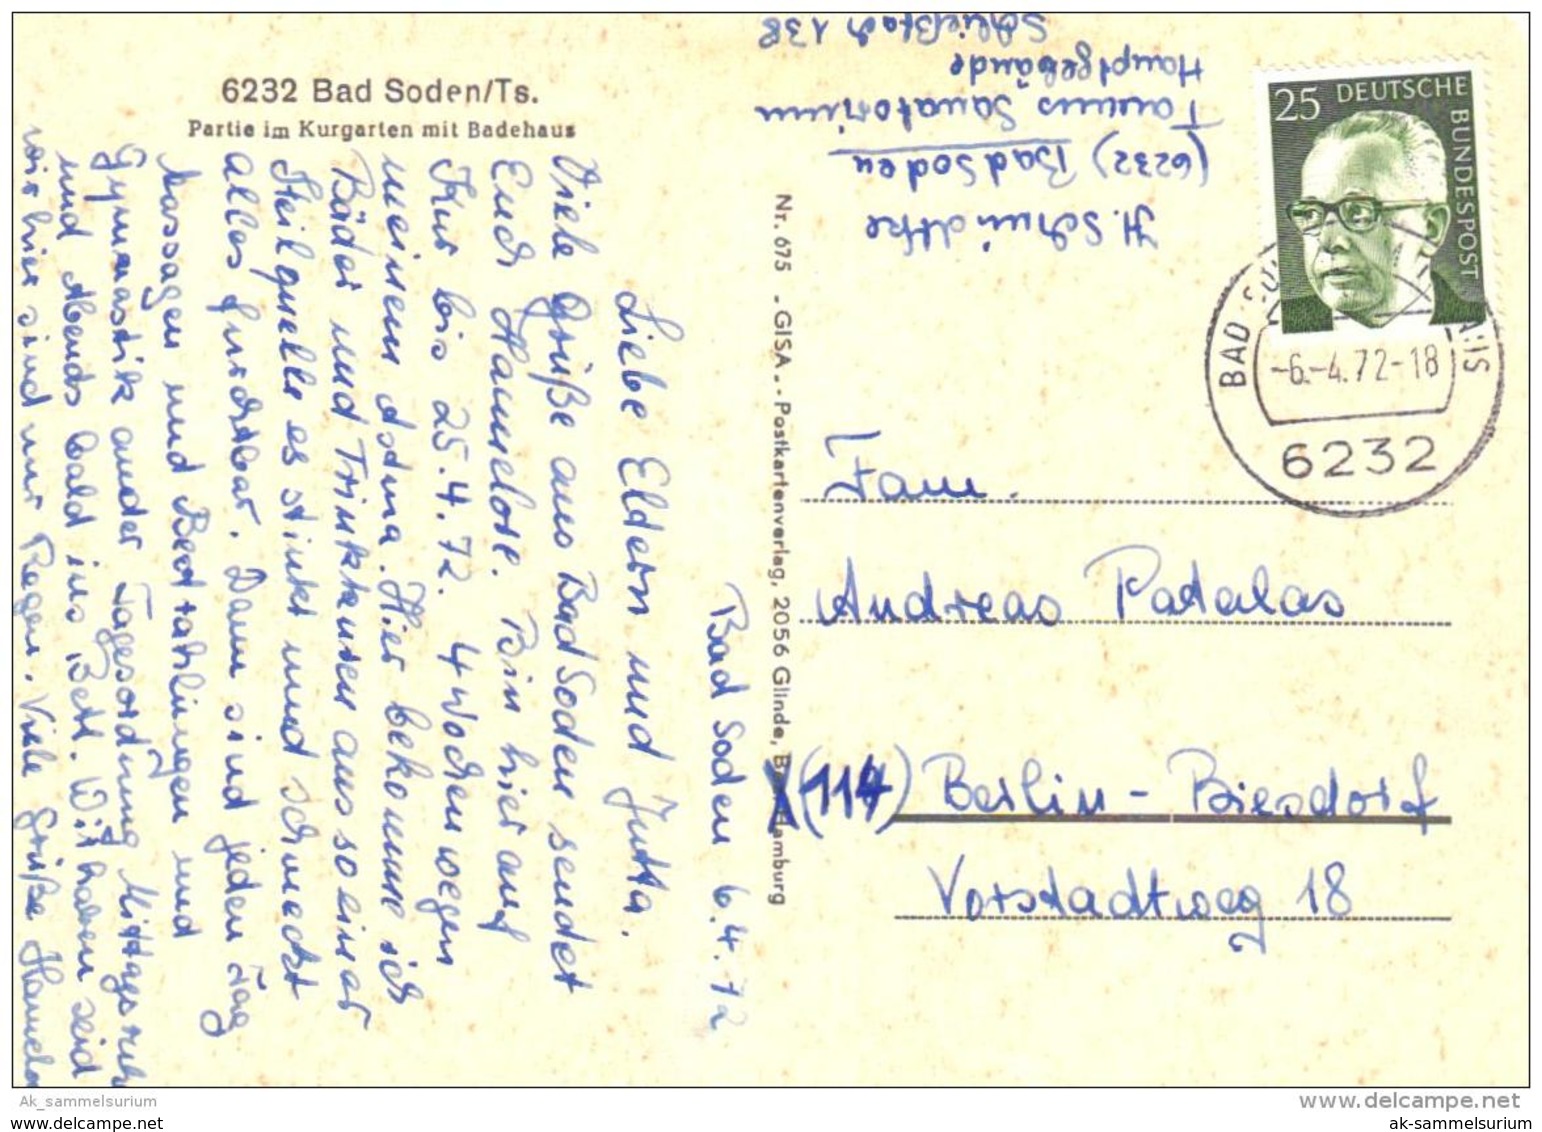 6232 Bad Soden/Ts.
Partie im Kurgarten mit Badehaus
Bad Soden 6.4.72
Liebe Eldern und Jutta.
Viele Grüße aus Bad Soden sendet
Euch Hannelore. Bin hier auf
Kur bis 25.4.72. 4 Wochen wegen
meinem Astma. Hier bekomme ich
Bäder und Trinkkuren aus so einer
Heilquelle es stinkt und schmeckt
alles furchtbar. Dann sind jeden Tag
Massagen und Bestrahlungen und
Gymnastik an der Tagesordnung Mittagsruh
und Abends bald ins Bett. Wir haben seid
wir hier sind nur Regen. Viele Grüße Hannelo
Nr. 675 - GISA - Postkartenverlag, 2056 Glinde, Hamburg
H. Schmidtke
(6232) Bad Soden
Taunus Sanatorium
Hauptgebäude
Schließfach 138
25 DEUTSCHE BUNDESPOST
BAD
-6.-4.72-18
6232
Fam.
Andreas Patalas
(114) Berlin - Biesdorf
Vorstadtweg 18
Ak_sammelsurium
www.delcampe.net
www.ak-sammelsurium.de
ak-sammelsurium